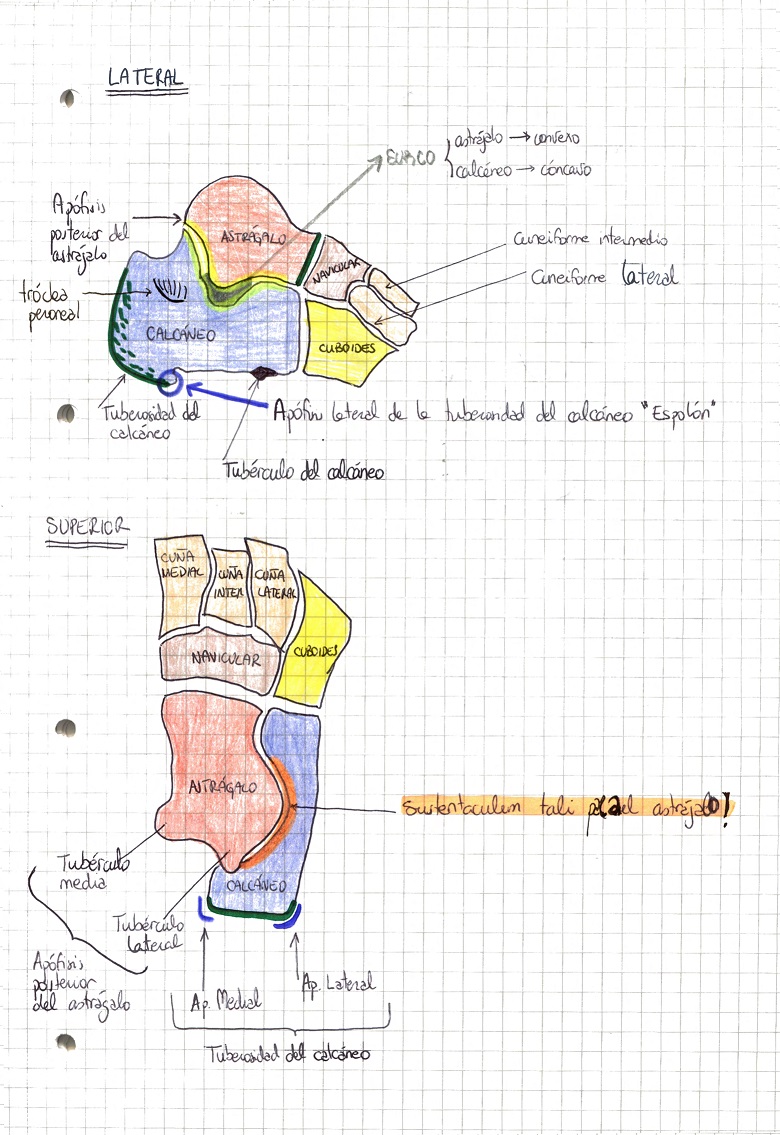 LATERAL
SURCO
astrájalo → convexo
calcáneo → cóncavo
Apófisis
posterior del
astrágalo
ASTRÁGALO
NAVICULAR
Cuneiforme intermedio
Cuneiforme lateral
tróclea
peroneal
CALCÁNEO
CUBOIDES
Tuberosidad del
calcáneo
Apófisis lateral de la tuberosidad del calcáneo "Espolón"
Tubérculo del calcáneo
SUPERIOR
CUÑA
MEDIAL
CUÑA
INTER
CUÑA
LATERAL
NAVICULAR
CUBOIDES
ASTRÁGALO
Sustentaculum tali del astrájalo!
Tubérculo
media
CALCÁNEO
Tubérculo
lateral
Apófisis
posterior
del astrágalo
Ap. Medial
Ap. Lateral
Tuberosidad del calcáneo